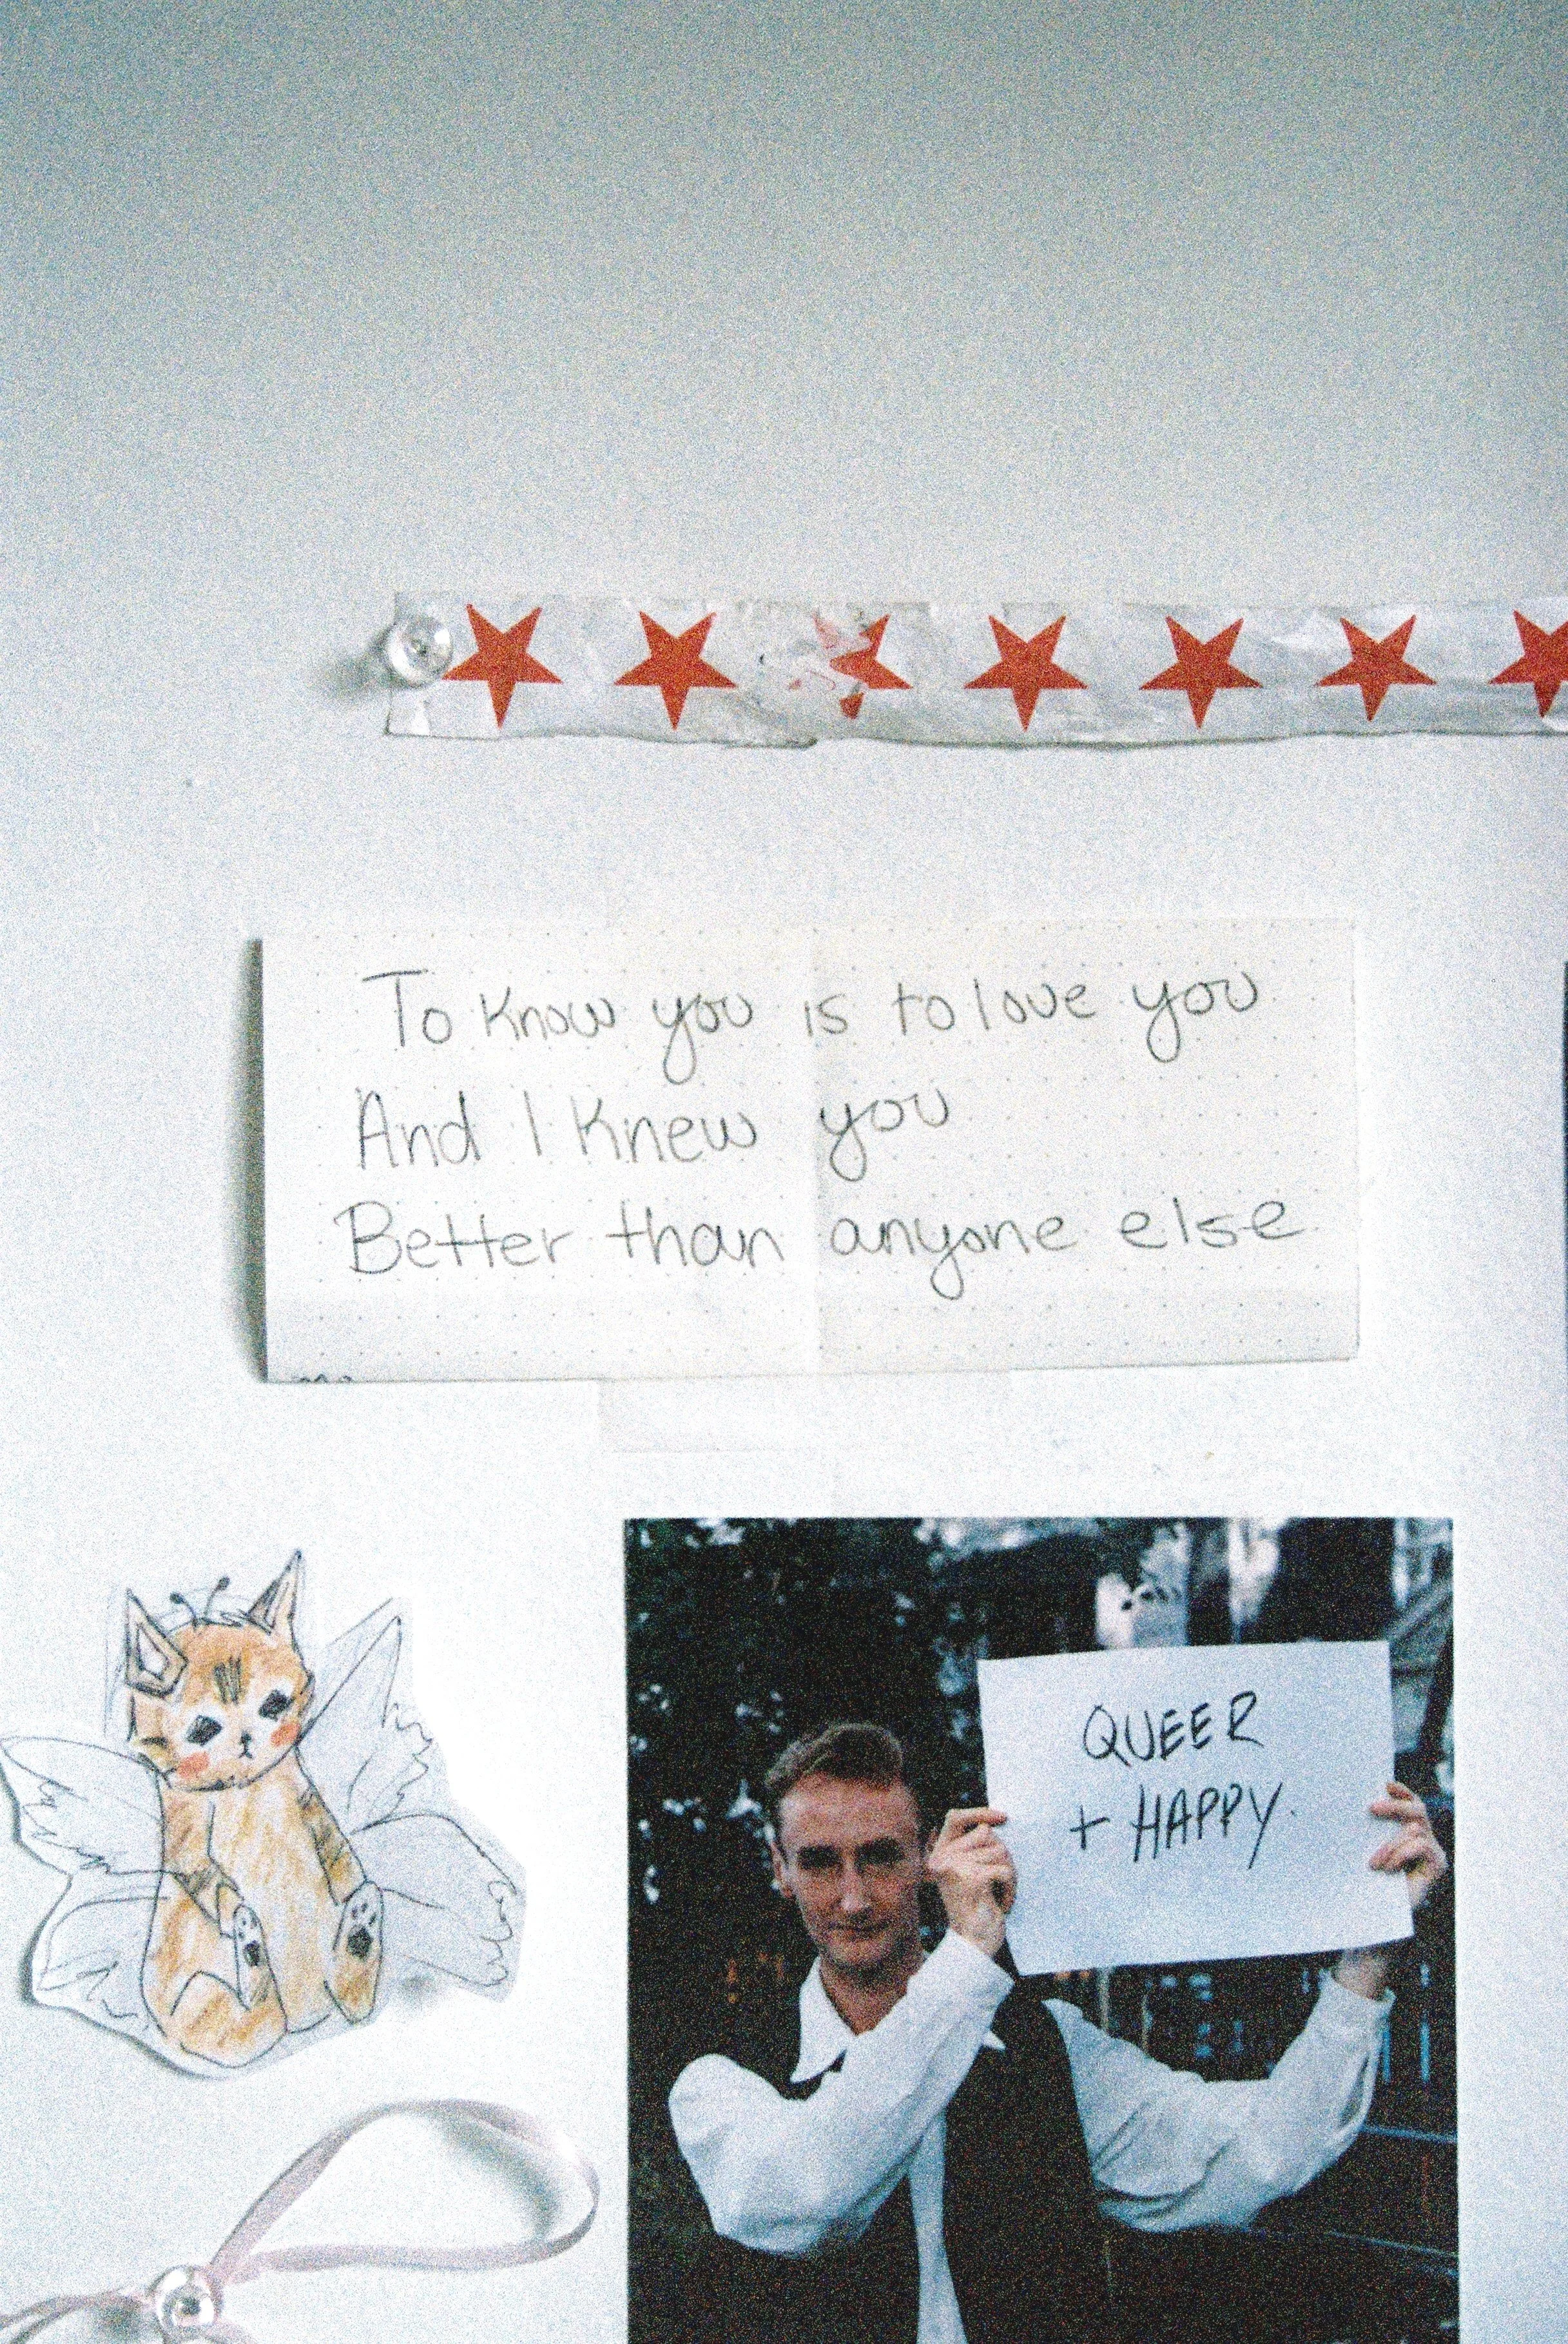 To know you is to love you
And I knew you
Better than anyone else
QUEER
+ HAPPY.